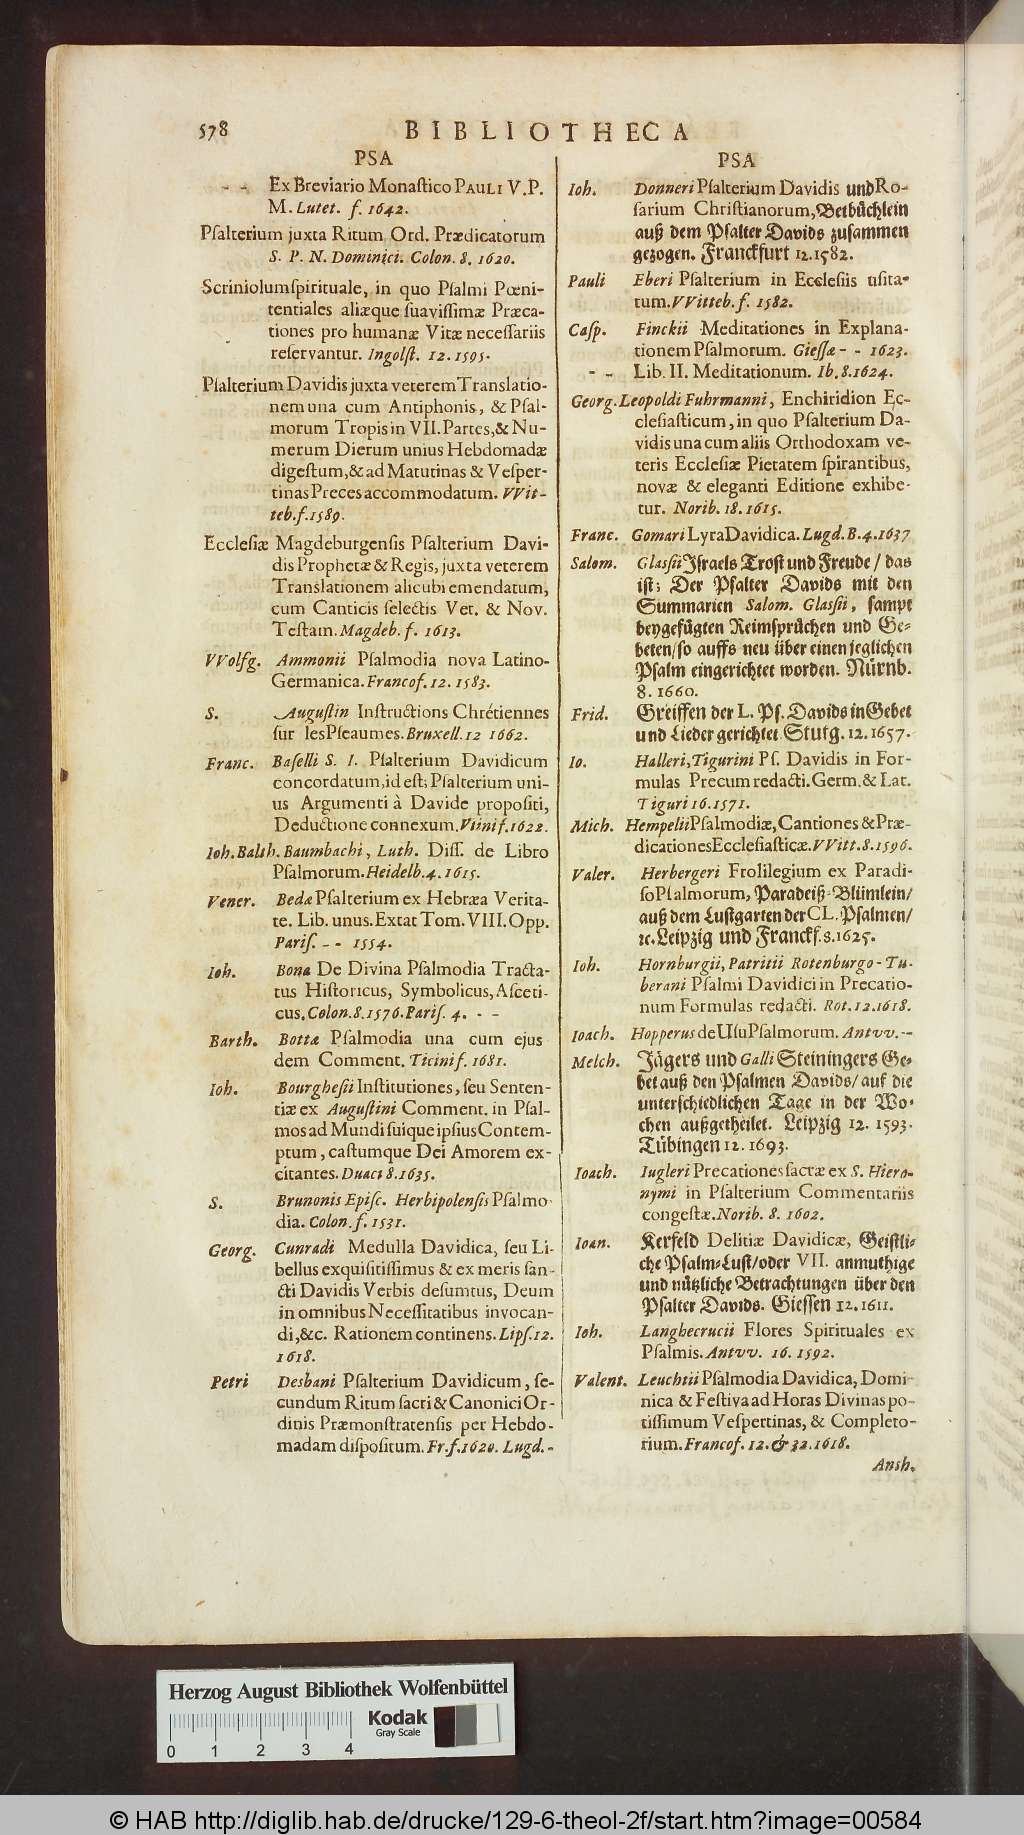 578 BIBLIOTHECA
PSA
- - Ex Breviario Monaſtico PAULI V. P.
M. Lutet. f. 1642.
Pſalterium juxta Ritum Ord. Prædicatorum
S. P. N. Dominici. Colon. 8. 1620.
Scriniolumſpirituale, in quo Pſalmi Pœni-
tentiales aliæque ſuaviſſimæ Præca-
tiones pro humanæ Vitæ neceſſariis
reſervantur. Ingolſt. 12. 1595.
Pſalterium Davidis juxta veterem Translatio-
nem una cum Antiphonis, & Pſal-
morum Tropis in VII. Partes, & Nu-
merum Dierum unius Hebdomadæ
digeſtum, & ad Matutinas & Veſper-
tinas Preces accommodatum. VVit-
teb. f. 1589.
Eccleſiæ Magdeburgenſis Pſalterium Davi-
dis Prophetæ & Regis, juxta veterem
Translationem alicubi emendatum,
cum Canticis ſelectis Vet. & Nov.
Teſtam. Magdeb. f. 1613.
VVolfg. Ammonii Pſalmodia nova Latino-
Germanica. Francof. 12. 1583.
S. Auguſtin Inſtructions Chrétiennes
ſur les Pſeaumes. Bruxell. 12 1662.
Franc. Baſelli S. I. Pſalterium Davidicum
concordatum, id eſt; Pſalterium uni-
us Argumenti à Davide propoſiti,
Deductione connexum. Viiniſ. 1622.
Ioh. Balth. Baumbachi, Luth. Diſſ. de Libro
Pſalmorum. Heidelb. 4. 1615.
Vener. Bedæ Pſalterium ex Hebræa Verita-
te. Lib. unus. Extat Tom. VIII. Opp.
Pariſ. - - 1554.
Ioh. Bona De Divina Pſalmodia Tracta-
tus Hiſtoricus, Symbolicus, Aſceti-
cus. Colon. 8. 1576. Pariſ. 4. - -
Barth. Bottæ Pſalmodia una cum ejus
dem Comment. Ticini f. 1681.
Ioh. Bourgheſii Inſtitutiones, ſeu Senten-
tiæ ex Auguſtini Comment. in Pſal-
mos ad Mundi ſuique ipſius Contem-
ptum, caſtumque Dei Amorem ex-
citantes. Duaci 8. 1635.
S. Brunonis Epiſc. Herbipolenſis Pſalmo
dia. Colon. f. 1531.
Georg. Cunradi Medulla Davidica, ſeu Li-
bellus exquiſitiſſimus & ex meris ſan-
cti Davidis Verbis deſumtus, Deum
in omnibus Neceſſitatibus invocan-
di, &c. Rationem continens. Lipſ. 12.
1618.
Petri Desbani Pſalterium Davidicum, ſe-
cundum Ritum ſacri & Canonici Or-
dinis Præmonſtratenſis per Hebdo-
madam diſpoſitum. Fr. f. 1620. Lugd. -
PSA
Ioh. Donneri Pſalterium Davidis und Ro-
ſarium Chriſtianorum, Betbüchlein
auß dem Pſalter Davids zuſammen
gezogen. Franckfurt 12. 1582.
Pauli Eberi Pſalterium in Eccleſiis uſita-
tum. VVitteb. f. 1582.
Caſp. Finckii Meditationes in Explana-
tionem Pſalmorum. Gieſſæ - - 1623.
- - Lib. II. Meditationum. Ib. 8. 1624.
Georg. Leopoldi Fuhrmanni, Enchiridion Ec-
cleſiaſticum, in quo Pſalterium Da-
vidis una cum aliis Orthodoxam ve-
teris Eccleſiæ Pietatem ſpirantibus,
novæ & eleganti Editione exhibe-
tur. Norib. 18. 1615.
Franc. Gomari Lyra Davidica. Lugd. B. 4. 1637
Salom. Glaſsii Iſraels Troſt und Freude / das
iſt; Der Pſalter Davids mit den
Summarien Salom. Glaſsii, ſampt
beygefügten Reimſprüchen und Ge-
beten / ſo auffs neu über einen jeglichen
Pſalm eingerichtet worden. Nürnb.
8. 1660.
Frid. Greiffen der L. Pſ. Davids in Gebet
und Lieder gerichtet Stutg. 12. 1657.
Io. Halleri, Tigurini Pſ. Davidis in For-
mulas Precum redacti. Germ. & Lat.
Tiguri 16. 1571.
Mich. Hempelii Pſalmodiæ, Cantiones & Præ-
dicationes Eccleſiaſticæ. VVitt. 8. 1596.
Valer. Herbergeri Frolilegium ex Paradi-
ſo Pſalmorum, Paradeiß-Blümlein /
auß dem Luſtgarten der CL. Pſalmen /
ꝛc. Leipzig und Franckf. 8. 1625.
Ioh. Hornburgii, Patritii Rotenburgo-Tu-
berani Pſalmi Davidici in Precatio-
num Formulas redacti. Rot. 12. 1618.
Ioach. Hopperus de Uſu Pſalmorum. Antvv. --
Melch. Jägers und Galli Steiningers Ge-
bet auß den Pſalmen Davids / auf die
unterſchiedlichen Tage in der Wo-
chen außgetheilet. Leipzig 12. 1593.
Tübingen 12. 1693.
Ioach. Iugleri Precationes ſacræ ex S. Hiero-
nymi in Pſalterium Commentariis
congeſtæ. Norib. 8. 1602.
Ioan. Kerfeld Delitiæ Davidicæ, Geiſtli-
che Pſalm-Luſt / oder VII. anmuthige
und nützliche Betrachtungen über den
Pſalter Davids. Gieſſen 12. 1611.
Ioh. Langhecrucii Flores Spirituales ex
Pſalmis. Antvv. 16. 1592.
Valent. Leuchtii Pſalmodia Davidica, Domi-
nica & Feſtiva ad Horas Divinas po-
tiſſimum Veſpertinas, & Completo-
rium. Francof. 12. & 32. 1618.
Ansh.
Herzog August Bibliothek Wolfenbüttel
Kodak
Gray Scale
0 1 2 3 4
© HAB http://diglib.hab.de/drucke/129-6-theol-2f/start.htm?image=00584